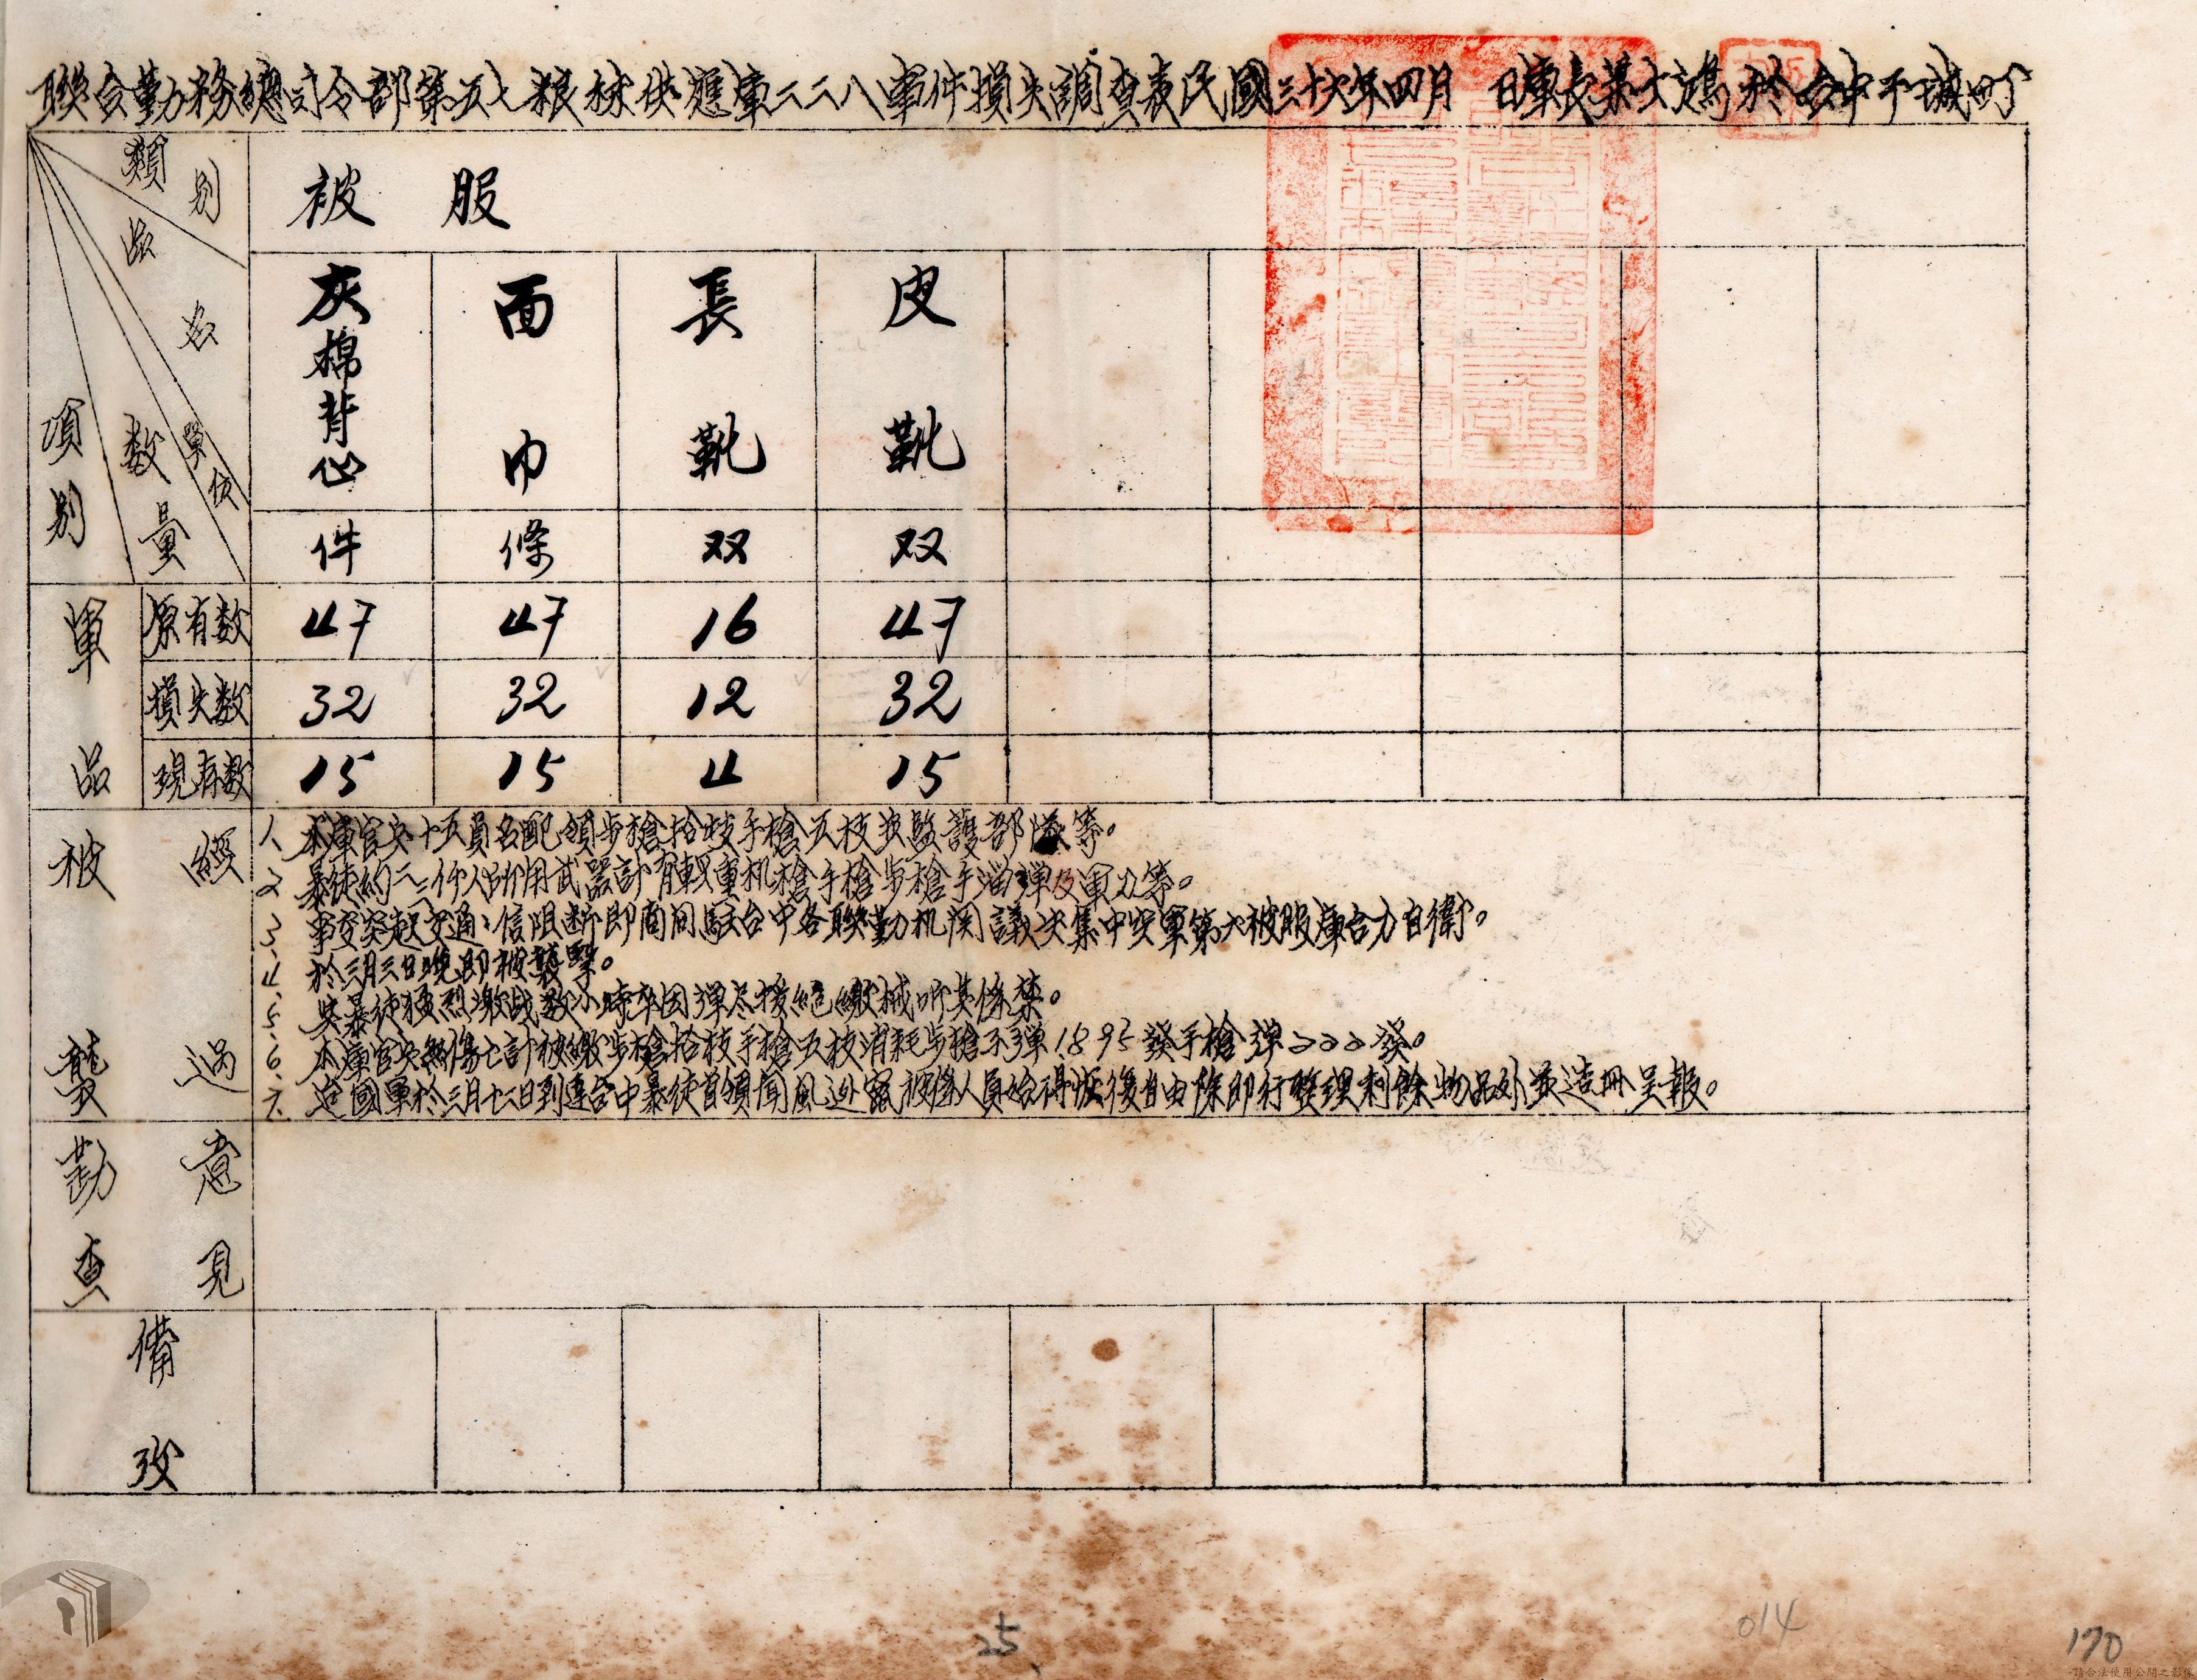 聯合勤務總司令部第五七粮秣供應庫二二八事件損失調查表民國三十六年四月 日庫長葉士 於台中干城町
類別
品名
單位
數量
項別
被服
灰棉背心 面巾 長靴 皮靴
件 條 双 双
軍品
原有数 47 47 16 47
損失数 32 32 12 32
現存数 15 15 4 15
被襲經過
1、本庫官兵十五員名配領步槍拾枝手槍五枝我監護部隊等。
2 暴徒約二三仟人所用武器計有輕重机槍手槍步槍手溜弹及軍刀等。
3、事变突起交通、信阻断即商同駐台中各聯勤机関議决集中空軍第六被服庫合力自衛。
4、於三月三日晚即被襲擊。
5、與暴徒猛烈激战数小時卒因弹尽援絕繳械听其係禁。
6、本庫官兵無傷亡計被繳步槍拾枝手槍五枝消耗步槍子弹1895發手槍弹222發。
7、迨國軍於三月十三日到達台中暴徒首領聞風逃竄被俘人員始得恢復自由除即行整理剩餘物品外並造冊呈報。
勘查意見
備攷
25
014
170
請合法使用公開之影像